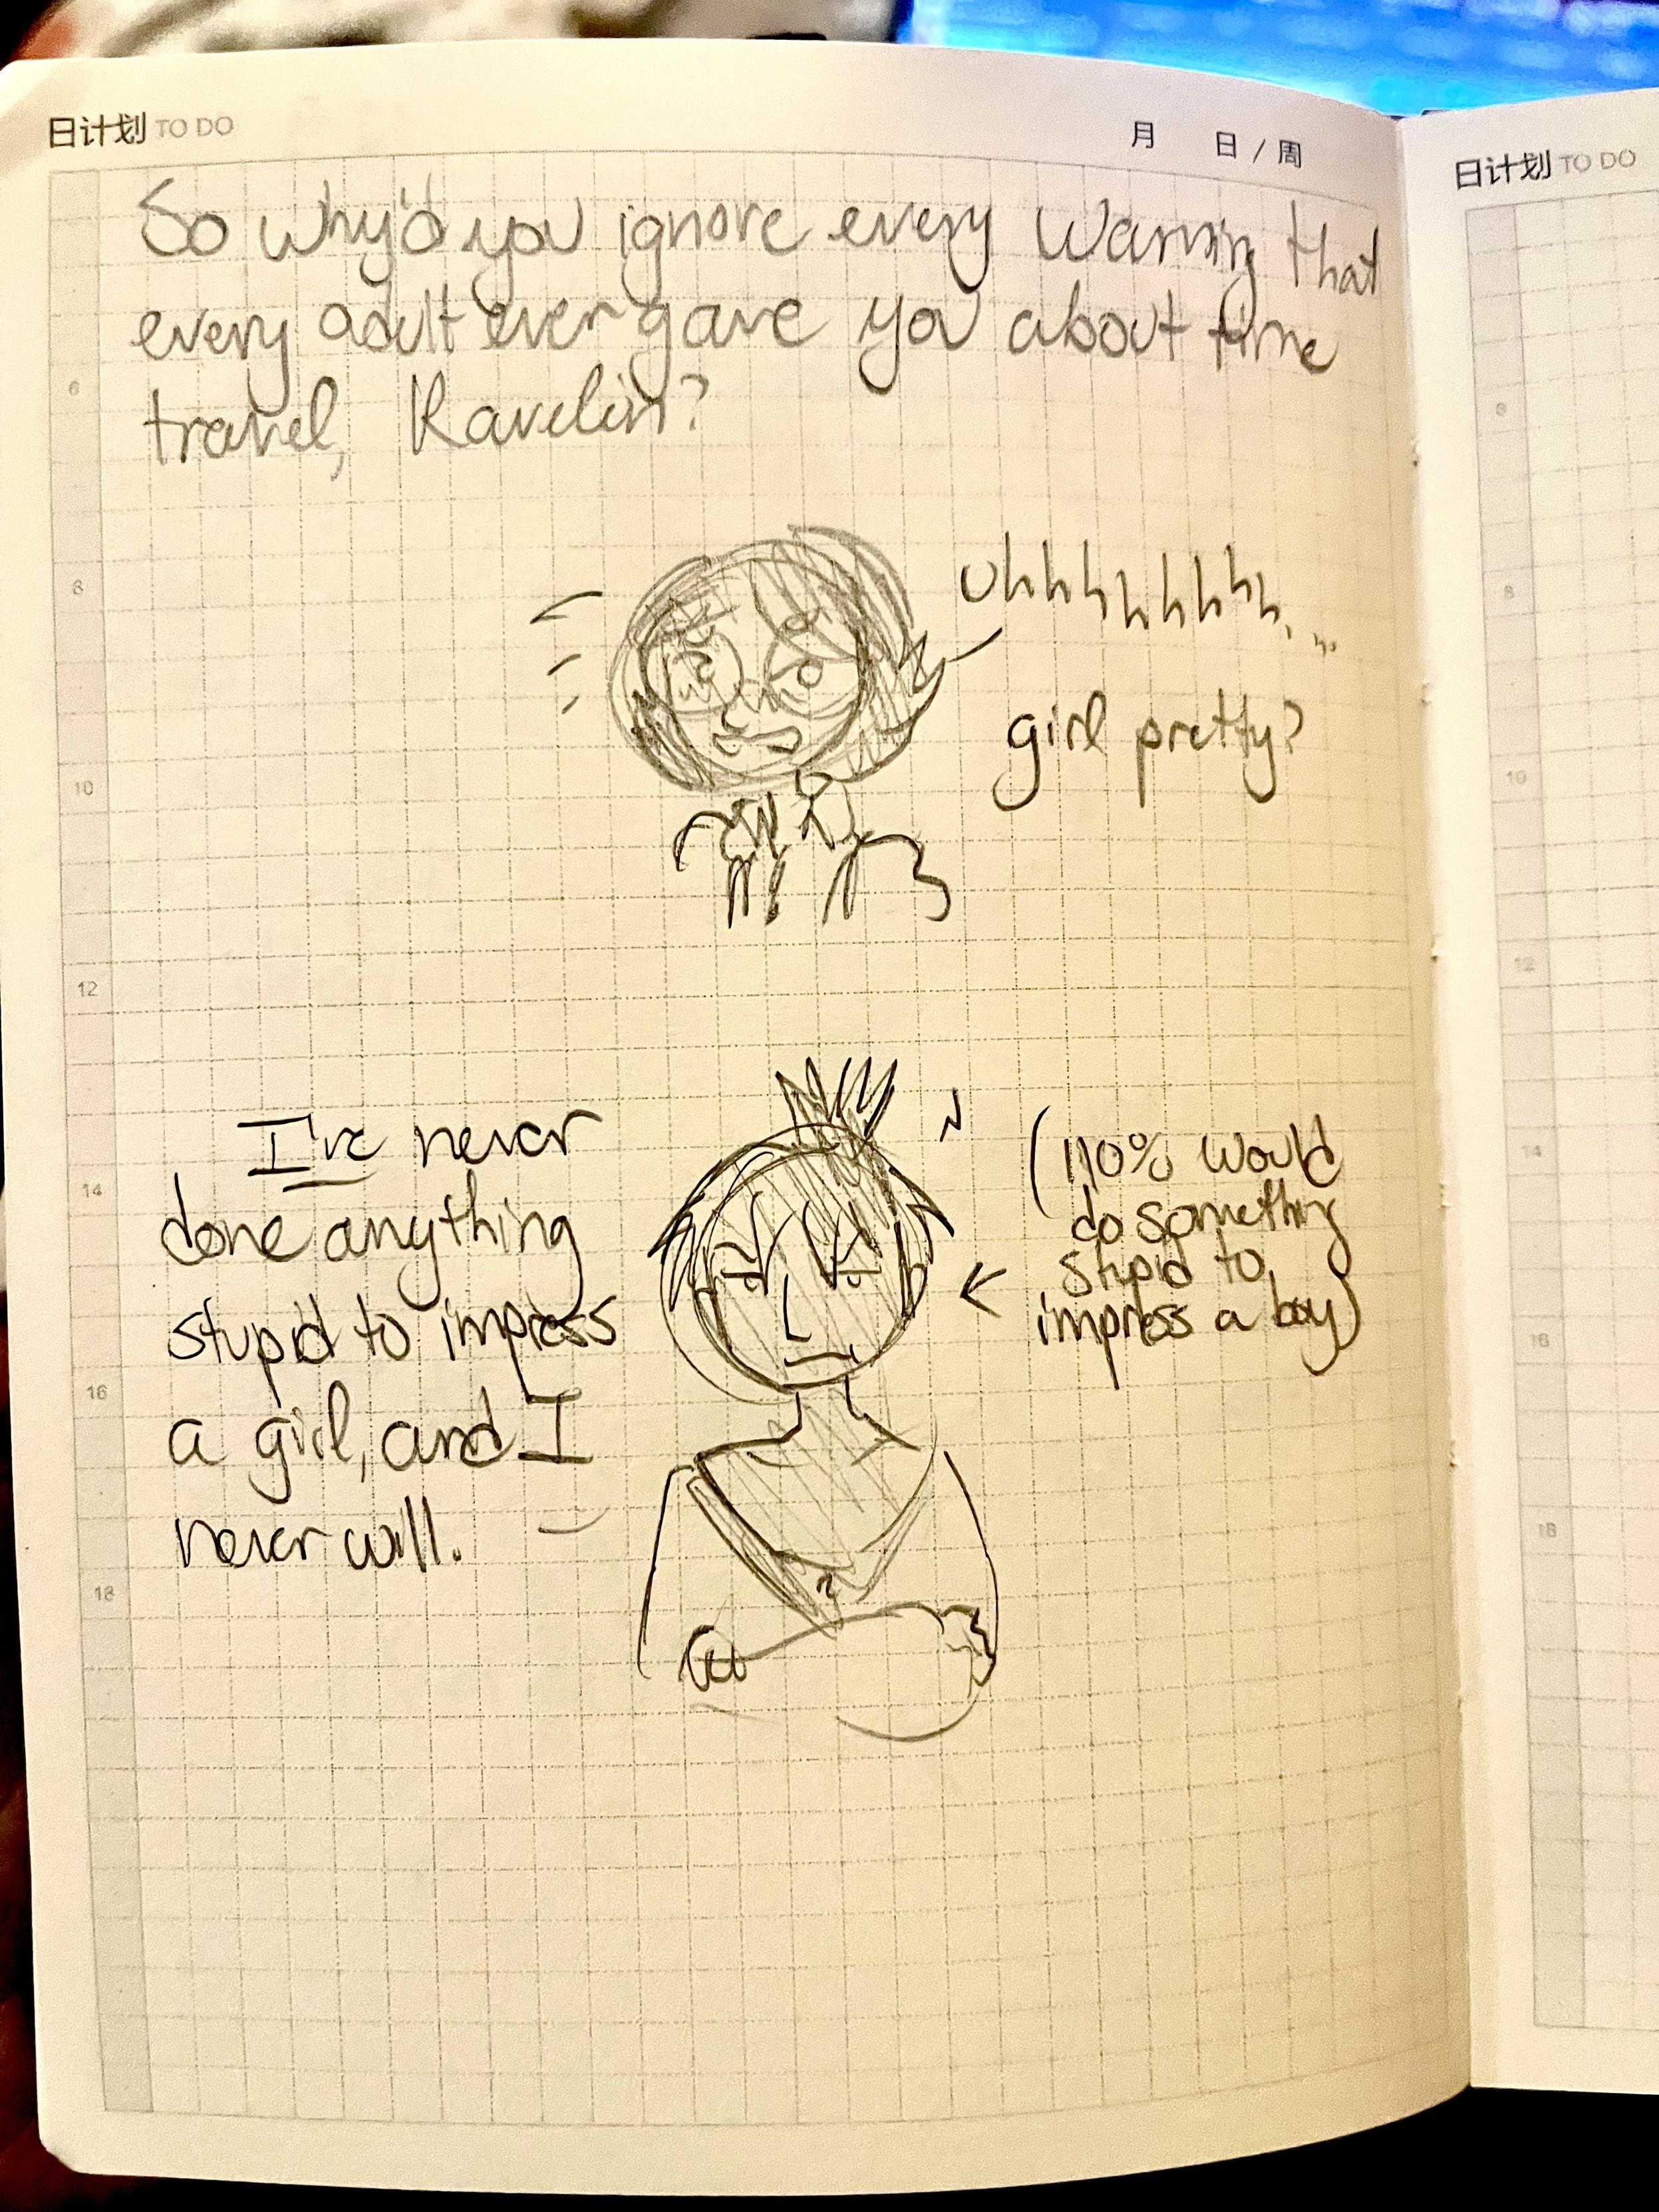 日计划 TO DO
月 日 / 周
So why'd you ignore every warning that
every adult ever gave you about time
travel, Ravelin?
uhhhhhhhh...
girl pretty?
I've never
done anything
stupid to impress
a girl, and I
never will.
(110% would
do something
stupid to
impress a boy)
6
8
10
12
14
16
18
日计划 TO DO
6
8
10
12
14
16
18